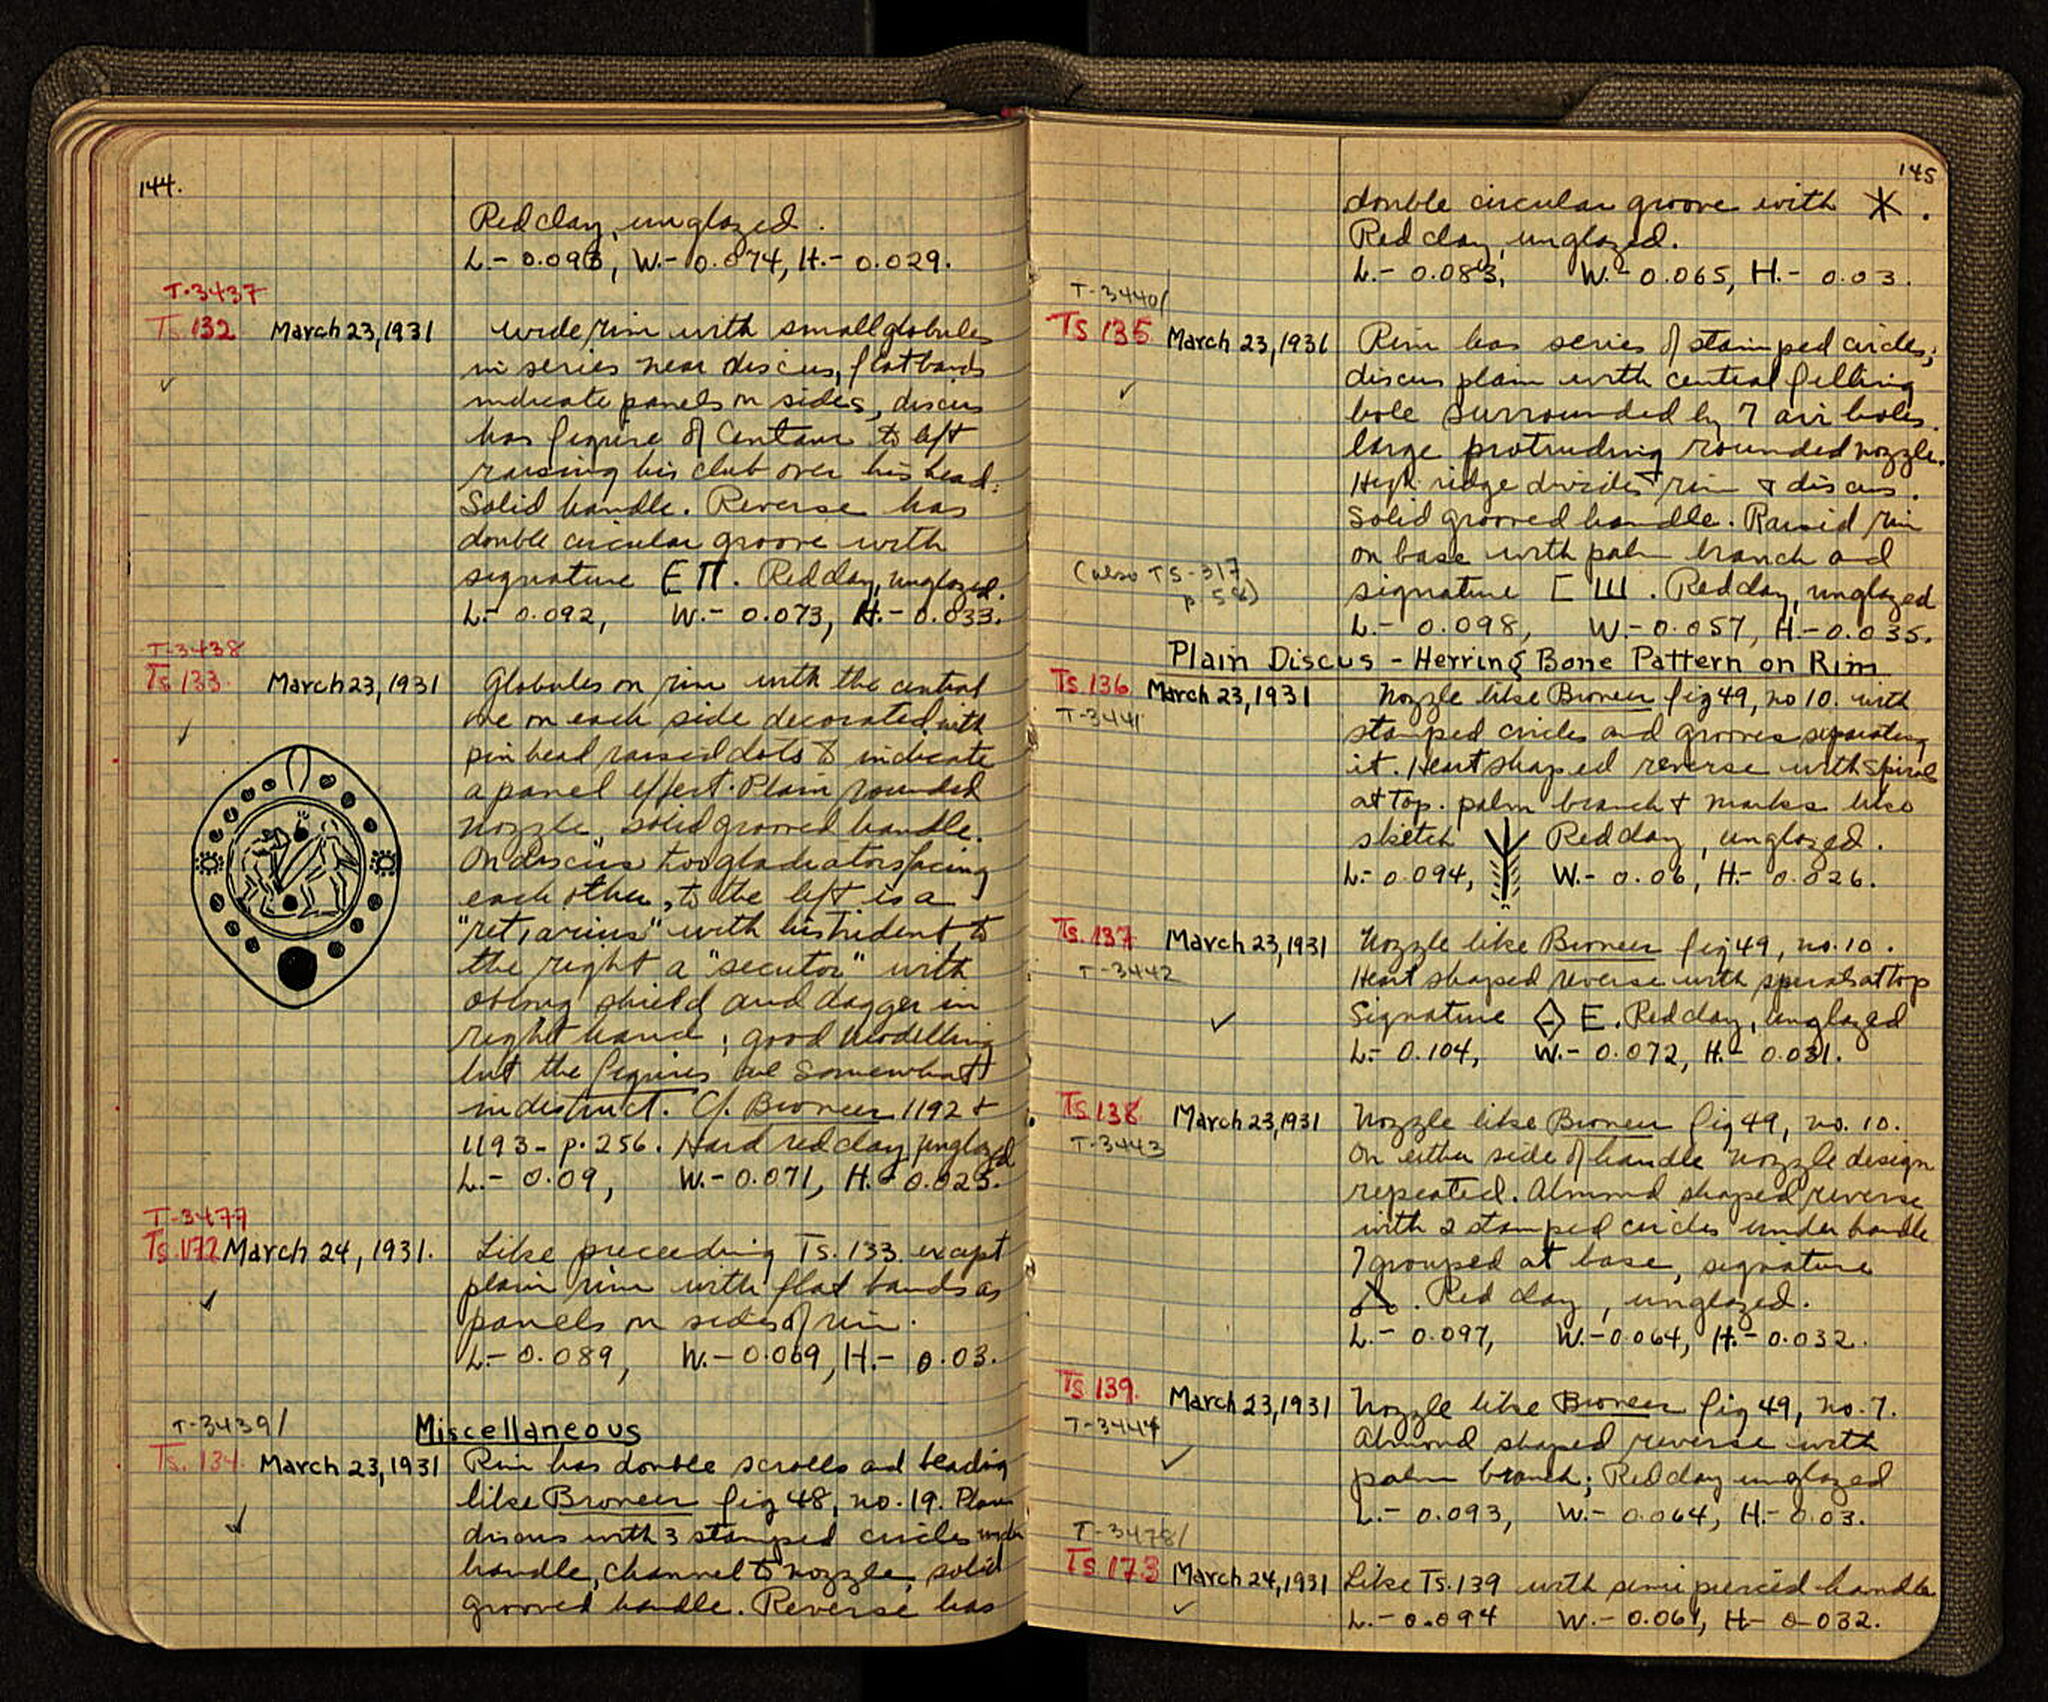 144.
Red clay, unglazed.
L.- 0.093, W.- 0.074, H.- 0.029.
T-3437
Ts 132 March 23, 1931 wide rim with small globules
in series near discus, flat bands
indicate panels on sides, discus
has figure of Centaur to left
raising his club over his head.
Solid handle. Reverse has
double circular groove with
signature Е П. Red clay, unglazed.
L.- 0.092, W.- 0.073, H.- 0.033.
T-3438
Ts 133. March 23, 1931 Globules on rim with the central
one on each side decorated with
pin head raised dots to indicate
a panel effect. Plain rounded
nozzle, solid grooved handle.
On discus two gladiators facing
each other, to the left is a
"retiarius" with his trident, to
the right a "secutor" with
oblong shield and dagger in
right hand; good modelling
but the figures are somewhat
indistinct. Cf. Broneer 1192 +
1193 - p. 256. Hard red clay, unglazed
L.- 0.09, W.- 0.071, H.- 0.023.
T-3477
Ts. 172 March 24, 1931. Like preceeding Ts. 133 except
plain rim with flat bands as
panels on sides of rim.
L.- 0.089, W.- 0.069, H.- 0.03.
Miscellaneous
T-3439/
Ts. 134. March 23, 1931 Rim has double scrolls and beading
like Broneer fig 48, no. 19. Plain
discus with 3 stamped circles under
handle, channel to nozzle, solid
grooved handle. Reverse has
145
double circular groove with
Red clay, unglazed.
L.- 0.083, W.- 0.065, H.- 0.03.
T-3440/
Ts 135 March 23, 1931 Rim has series of stamped circles;
discus plain with central filling
hole surrounded by 7 air holes.
large protruding rounded nozzle.
High ridge divides rim + discus.
Solid grooved handle. Raised rim
on base with palm branch and
(also TS-317
signature Ε Ш. Red clay, unglazed
L.- 0.098, W.- 0.057, H.- 0.035.
Plain Discus - Herring Bone Pattern on Rim
Ts. 136 March 23, 1931 Nozzle like Broneer fig 49, no 10. with
T-3441
stamped circles and grooves separating
it. Heart shaped reverse with spirals
at top. palm branch + marks like
sketch Red clay, unglazed.
L.- 0.094, W.- 0.06, H.- 0.026.
Ts. 137 March 23, 1931 Nozzle like Broneer fig 49, no. 10.
T-3442
Heart shaped reverse with spirals at top
Signature E. Red clay, unglazed
L.- 0.104, W.- 0.072, H.- 0.031.
Ts. 138 March 23, 1931 Nozzle like Broneer fig 49, no. 10.
T-3443
On either side of handle nozzle design
repeated. Almond shaped reverse
with 2 stamped circles under handle
7 grouped at base, signature
Red clay, unglazed.
L.- 0.097, W.- 0.064, H.- 0.032.
Ts 139. March 23, 1931 Nozzle like Broneer fig 49, no. 7.
T-3444
Almond shaped reverse with
palm branch; Red clay unglazed
L.- 0.093, W.- 0.064, H.- 0.03.
T-3478/
Ts 173 March 24, 1931 Like Ts. 139 with semi pierced handle
L.- 0.094 W.- 0.061, H- 0-032.